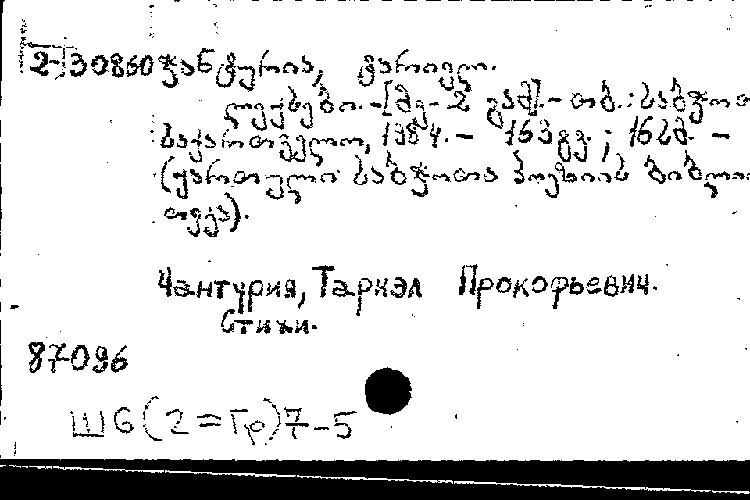 2-30860 ჭანტურია, ტარიელ.
ლექსები. - [მე-2 გამ]. - თბ.: საბჭოთ
საქართველო, 1984. - 163გვ.; 16სმ. -
(ქართული საბჭოთა პოეზიის ბიბლიო
თეკა).
Чантурия, Тариэл Прокофьевич.
Стихи.
87096
Ш6(2=Гр)7-5